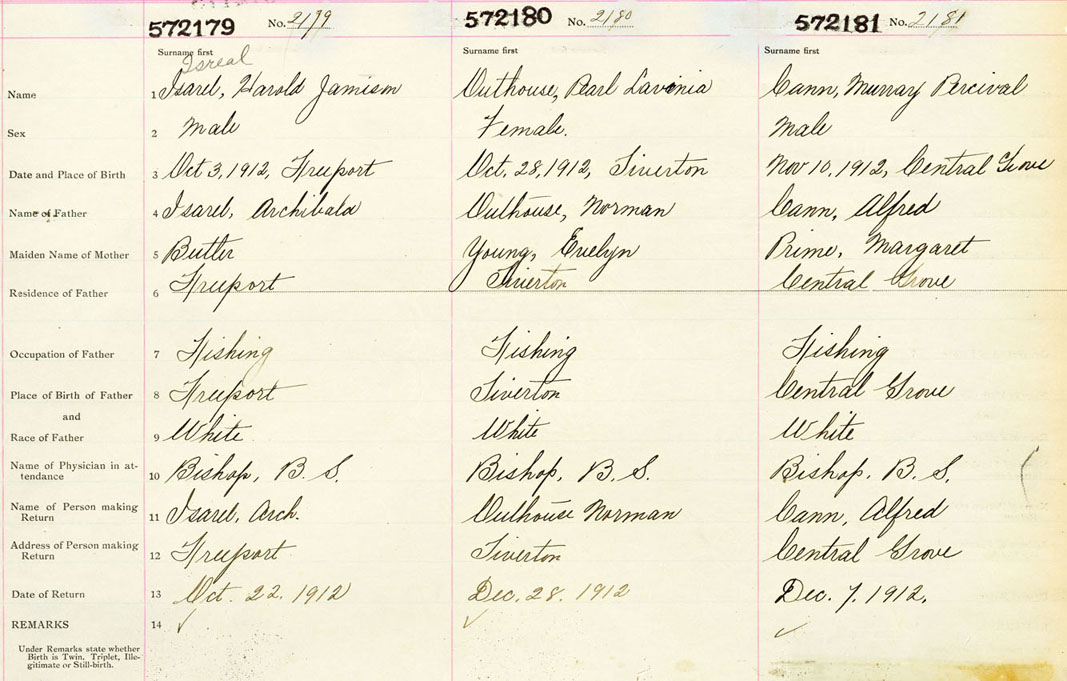 572179 No. 2179 572180 No. 2180 572181 No. 2181
Surname first Surname first Surname first
Isreal
Name 1 Isarel, Harold Jamison Outhouse, Pearl Lavinia Cann, Murray Percival
Sex 2 Male Female. Male
Date and Place of Birth 3 Oct 3, 1912, Freeport Oct. 28, 1912, Tiverton Nov 10, 1912, Central Grove
Name of Father 4 Isarel, Archibald Outhouse, Norman Cann, Alfred
Maiden Name of Mother 5 Butler Young, Evelyn Prime, Margaret
Residence of Father 6 Freeport Tiverton Central Grove
Occupation of Father 7 Fishing Fishing Fishing
Place of Birth of Father 8 Freeport Tiverton Central Grove
and
Race of Father 9 White White White
Name of Physician in at-
tendance 10 Bishop, B. S. Bishop, B. S. Bishop, B. S.
Name of Person making
Return 11 Isarel, Arch. Outhouse Norman Cann, Alfred
Address of Person making
Return 12 Freeport Tiverton Central Grove
Date of Return 13 Oct. 22. 1912 Dec. 28. 1912 Dec. 7. 1912.
REMARKS 14
Under Remarks state whether
Birth is Twin, Triplet, Ille-
gitimate or Still-birth.